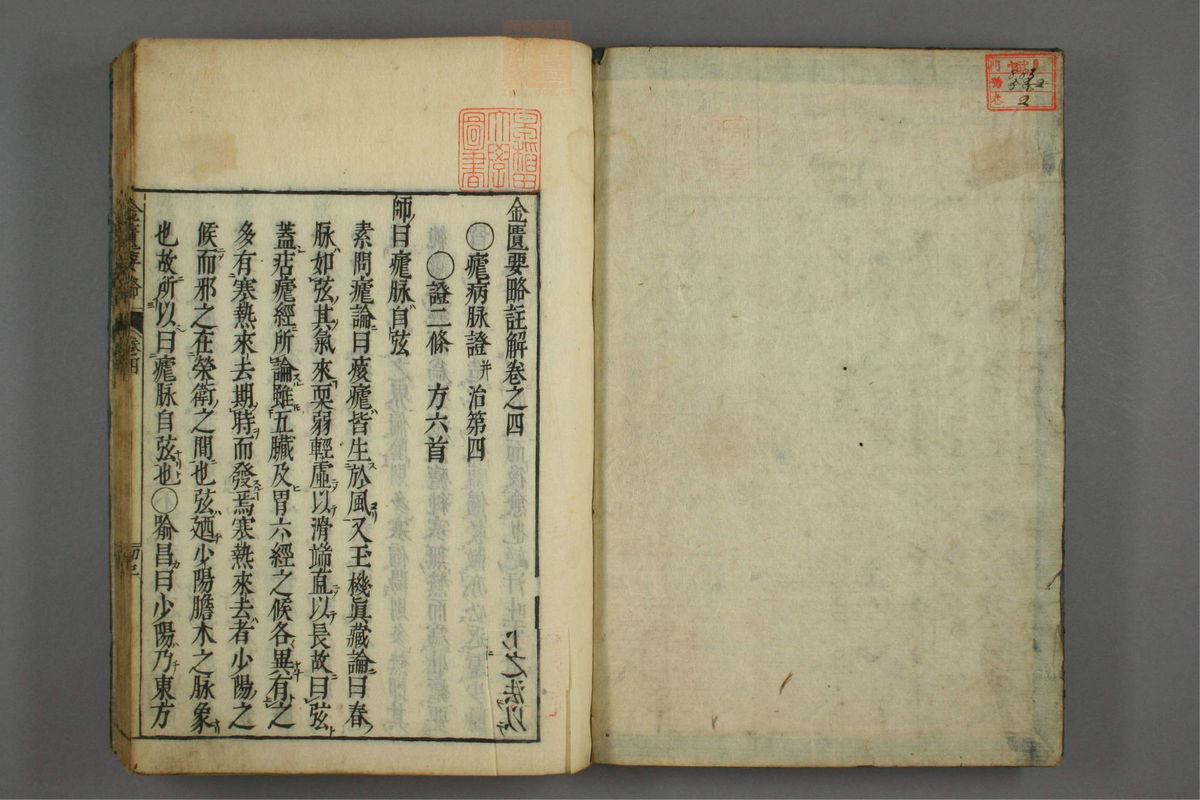 金匱要略註解卷之四
瘧病脉證幷治第四
證二條　方六首
師曰瘧脉自弦
素問瘧論曰痎瘧皆生於風又玉機眞藏論曰春
脉如弦其氣來耎弱輕虛以滑端直以長故曰弦
蓋痁瘧經所論雖五臟及胃六經之候各異有之
多有寒熱來去期時而發焉寒熱來去者少陽之
候而邪之在榮衛之間也弦廼少陽膽木之脉象
也故所以曰瘧脉自弦也○喻昌曰少陽乃東方
金匱要略　卷四
早稲田大學圖書